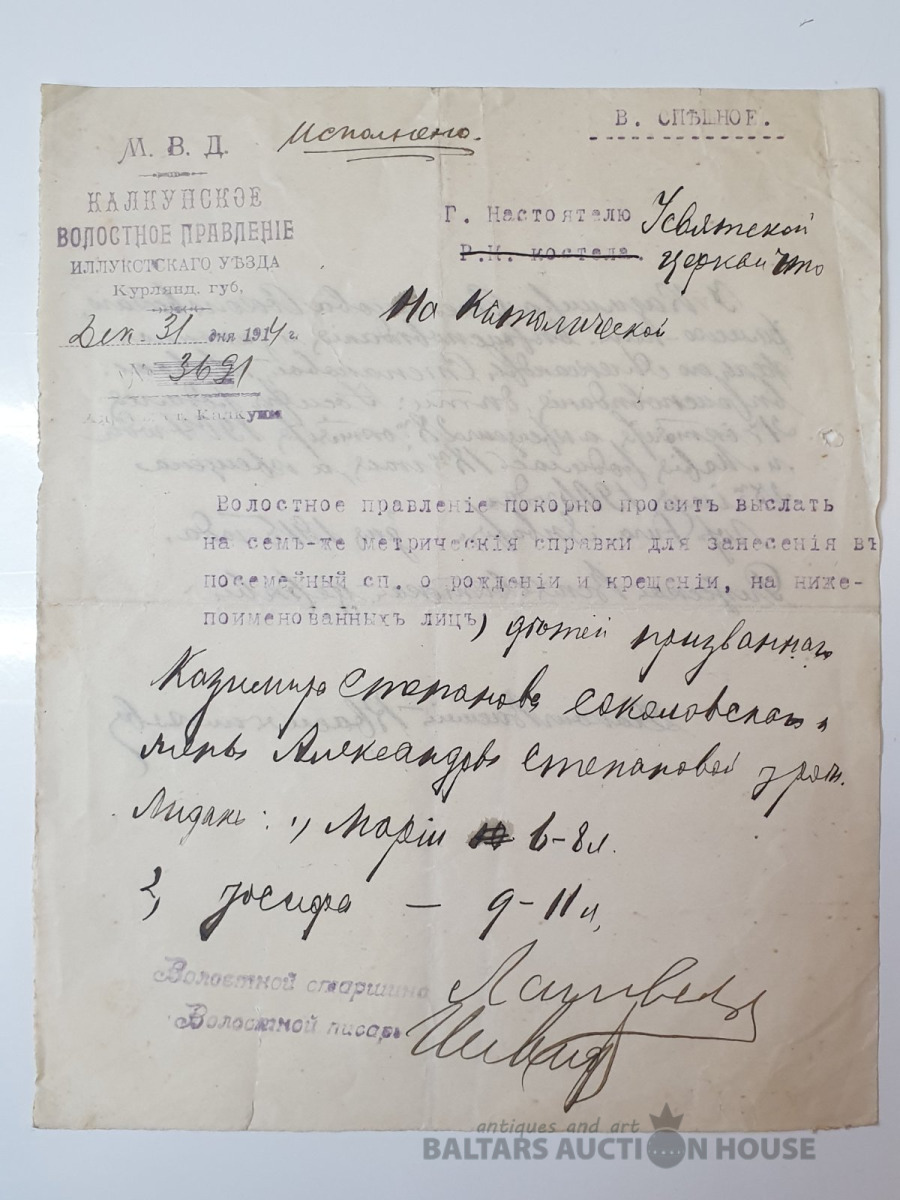 М. В. Д.
КАЛКУНСКОЕ
ВОЛОСТНОЕ ПРАВЛЕНІЕ
ИЛЛУКСТСКАГО УѢЗДА
Курлянд. губ,
Дек. 31 дня 1914 г.
№ 3691
Калкуны
Исполнено.
В. СПѢШНОЕ.
Г. Настоятелю Усвятской
Р.К. костела. церкви что
На Католической
Волостное правленіе покорно проситъ выслать
на семъ-же метрическія справки для занесенія въ
посемейный сп. о рожденіи и крещеніи, на ниже-
поименованныхъ лицъ, дѣтей призваннаго
Казимира Степанова Соколовскаго и
Александры Степановой урож.
1, Маріи 6-8 л.
2, Іосифа — 9-11 л,
Волостной старшина
Волостной писарь
antiques and art
BALTARS AUCTION HOUSE